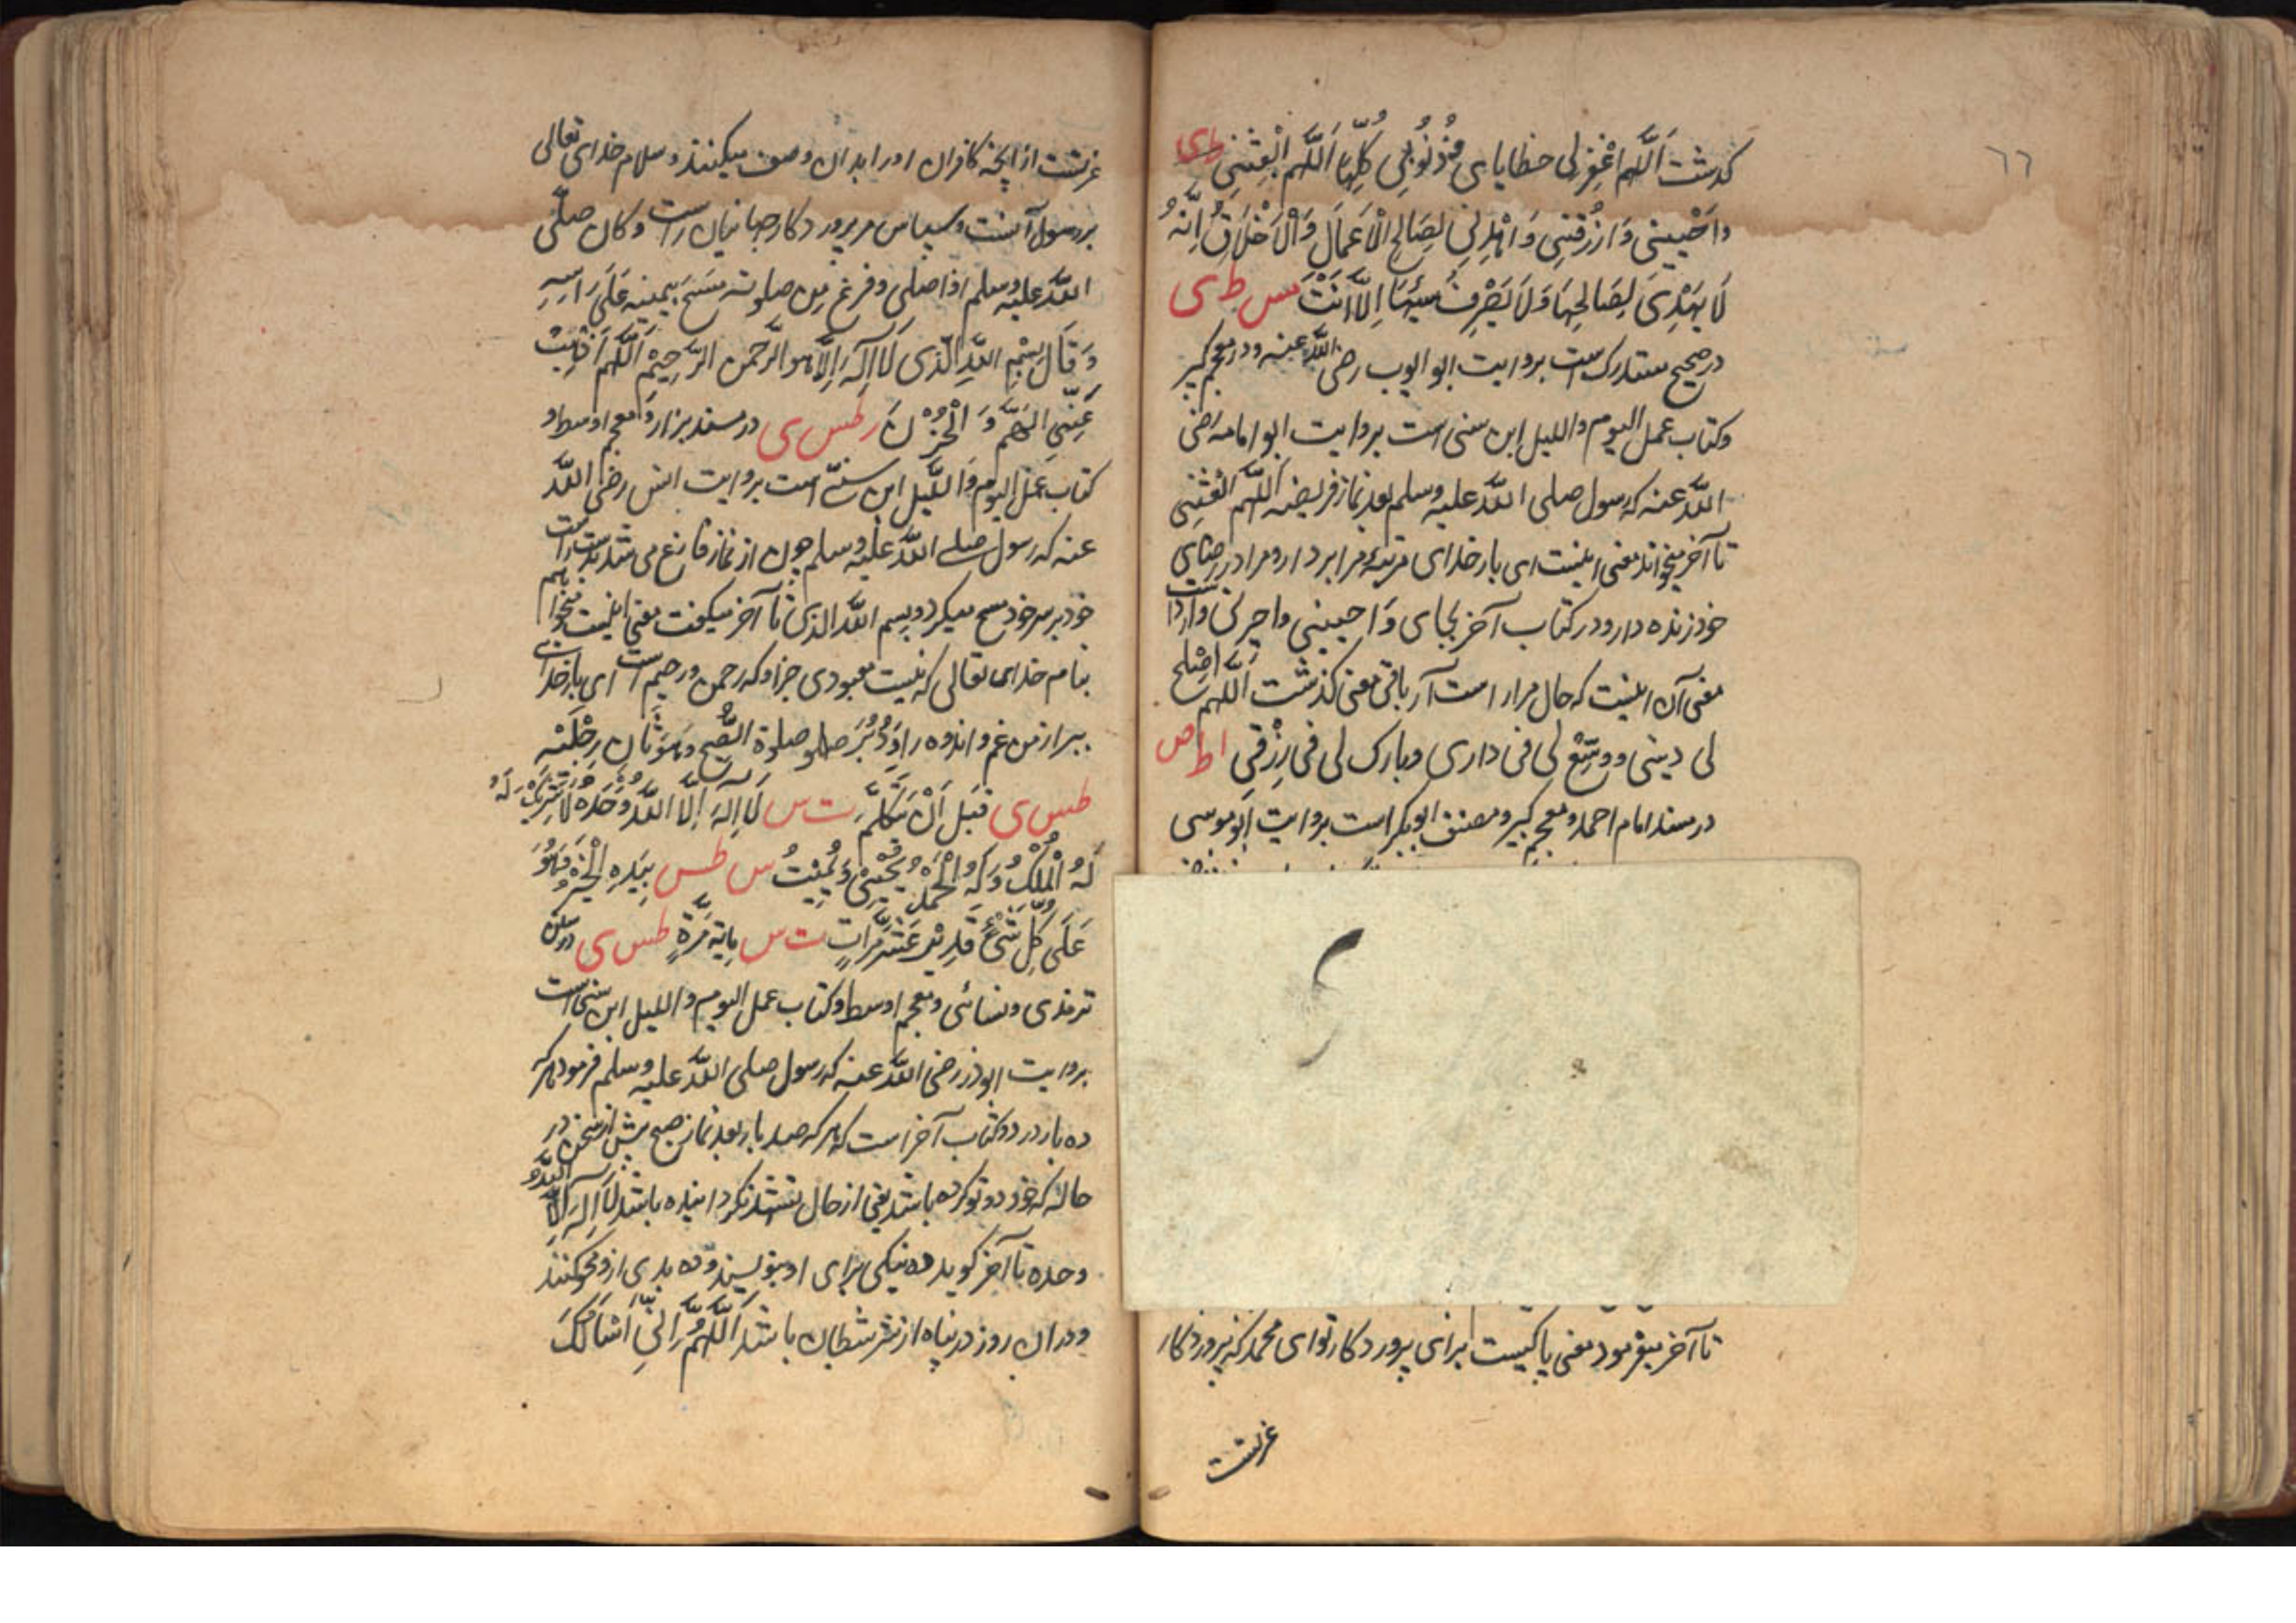 ٦٦
گذشت اَللّٰهُمَّ اغْفِرْ لِی خطایای وَذُنُوبِی کُلَّهَا اَللّٰهُمَّ انْعِشْنِی ط ی
وَاَحْیِیْنِی وَارْزُقْنِی وَاهْدِنِی لِصَالِحِ الْاَعْمَالِ وَالْاَخْلَاقِ اِنَّهُ
لَا یَهْدِیْ لِصَالِحِهَا وَلَا یَصْرِفُ سَیِّئَهَا اِلَّا اَنْتَ س ط ی
در صحیح مستدرک است بروایت ابو ایوب رضی اللّٰه عنه ودر معجم کبیر
وکتاب عمل الیوم واللیل ابن سنی است بروایت ابو امامه رضی
اللّٰه عنه که رسول صلی اللّٰه علیه وسلم بعد نماز فریضه اَللّٰهُمَّ انْعِشْنِی
تا آخر میخواند معنی اینست ای بار خدای مرتبهٔ مرا بردار ومرا در رضای
خود زنده دار ودر کتاب آخر بجای وَاحیینی واجرنی وارد است
معنی آن اینست که حال مرا راست آر باقی معنی گذشت اَللّٰهُمَّ اَصْلِحْ
لی دینی ووَسِّعْ لی فی داری وبارک لی فی رِزْقِی ا ط ص
در مسند امام احمد ومعجم کبیر ومصنف ابوبکر است بروایت ابو موسی
تا آخر میفرمود معنی پاکیست برای پروردگار توای محمد که پروردگار
عزتست
عزتست از آنچه کافران اورا بدان وصف میکنند وسلام خدای تعالی
بر رسول آنست وسپاس مر پروردگار جهانیان راست وکان صلّی
اللّٰه علیه وسلم اذا صلی وفرغ مِن صلوته مَسَحَ بیمینه عَلَی رَاسِهِ
وَقَالَ بِسْمِ اللّٰهِ الَّذی لَا اِلٰهَ اِلَّا هو الرَّحمن الرَّحِیْمُ اَللّٰهُمَّ اَذْهِبْ
عَنِّی الْهَمَّ وَ الْحُزْنَ ر طس ی در مسند بزار ومعجم اوسط و
کتاب عمل الیوم واللَّیل ابن سنّے است بروایت انس رضی اللّٰه
عنه که رسول صلے اللّٰه علیه وسلم چون از نماز فارغ می شد دست راست
خود بر سر خود مسح میکرد وبسم اللّٰه الذی تا آخر میگفت معنی اینست میخواهم
بنام خدای تعالی که نیست معبودی جز او که رحمن ورحیم است ای بار خدای
ببر از من غم واندوه را وَدُبُرَ صلوة الصُّبح وَهوَ ثَانٍ رِجْلَیْهِ
طس ی قَبْلَ اَنْ یَتَکَلَّمَ ت س لَا اِلٰهَ اِلَّا اللّٰهُ وَحْدَهُ لَا شَرِیْکَ لَهُ
لَهُ الْمُلْکُ وَلَهُ الْحَمْدُ یُحْیِی وَیُمِیْتُ س طس بِیَدِهِ الْخَیْرُ وَهُوَ
عَلَی کُلِّ شَیْءٍ قَدِیْرٌ عَشْرَ مَرَّاتٍ ت س مِایَةَ مَرَّةٍ طس ی در سنن
ترمذی ونسائی ومعجم اوسط وکتاب عمل الیوم واللیل ابن سنی است
بروایت ابوذر رضی اللّٰه عنه که رسول صلی اللّٰه علیه وسلم فرمود هرکه
ده بار در دو کتاب آخر است که هر که صد بار بعد نماز صبح پیش از سخن در
حالی که خود دو تو کرده باشد یعنی از حال تشهد نگردانیده باشد لَا اِلٰهَ اِلَّا اللّٰهُ
وحده تا آخر گوید ده نیکی برای او بنویسند وده بدی ازو محو کنند
ودران روز در پناه از شر شیطان باشد اَللّٰهُمَّ اِنِّی اَسْاَلُکَ